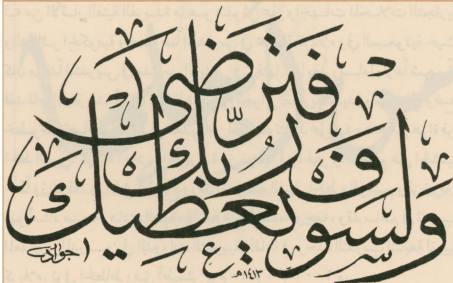 ولسوف يعطيك ربك فترضى
جوادي
١٤١٣هـ